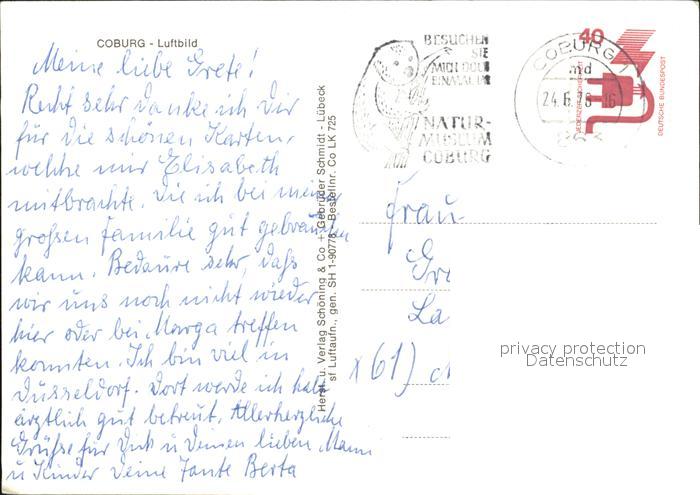 COBURG - Luftbild
Meine liebe Grete!
Recht sehr danke ich Dir
für die schönen Karten,
welche mir Elisabeth
mitbrachte. Die ich bei meiner
großen Familie gut gebrauchen
kann. Bedaure sehr, daß
wir uns noch nicht wieder
hier oder bei Marga treffen
konnten. Ich bin viel in
Düsseldorf. Dort werde ich halt
ärztlich gut betreut. Allerherzliche
Grüße für Dich u Deinen lieben Mann
u Kinder Deine Tante Berta
Herst. u. Verlag Schöning & Co + Gebrüder Schmidt - Lübeck
sf Luftaufn., gen. SH 1-90778, Bestellnr. Co LK 725
BESUCHEN
SIE
MICH DOCH
EINMAL IM
NATUR-
MUSEUM
COBURG
COBURG
md
24.6.
40
JEDERZEIT SICHERHEIT
DEUTSCHE BUNDESPOST
Frau
Gr
La
61)
privacy protection
Datenschutz